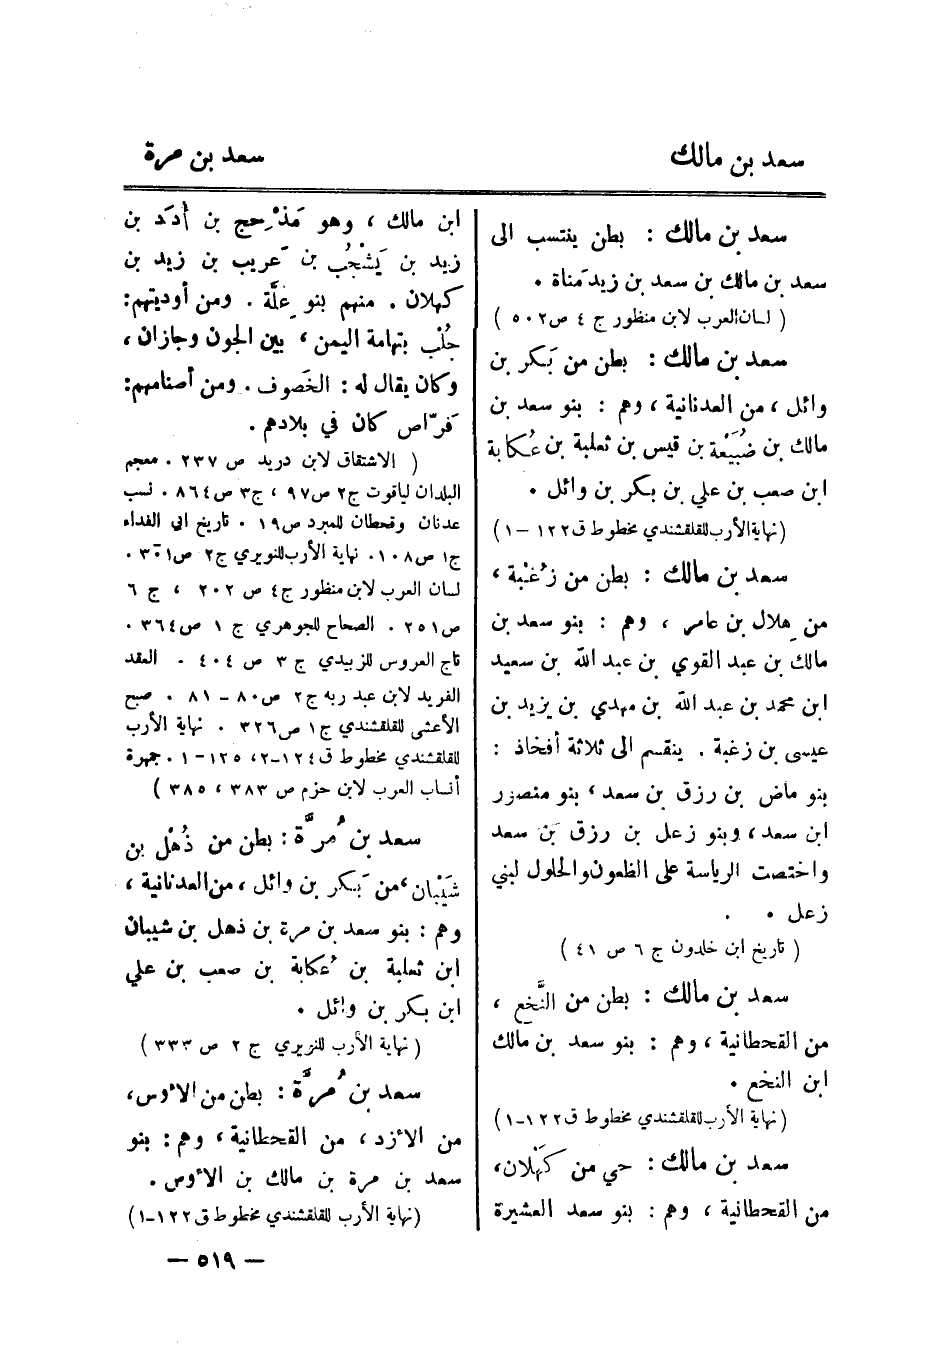 سعد بن مالك
سعد بن مرة
سعد بن مالك : بطن ينتسب الى
سعد بن مالك بن سعد بن زيد مَناة .
( لسان العرب لابن منظور ج ٤ ص٥٠٢ )
سعد بن مالك : بطن من بَكر بن
وائل ، من العدنانية ، وهم : بنو سعد بن
مالك بن ضُبَيْعَة بن قيس بن ثعلبة بن عُكابة
ابن صعب بن علي بن بكر بن وائل .
(نهاية الأرب للقلقشندي مخطوط ق١٢٢ –١)
سعد بن مالك : بطن من زُغْبة ،
من هِلال بن عامر ، وهم : بنو سعد بن
مالك بن عبد القوي بن عبد الله بن سعيد
ابن محمد بن عبد الله بن مهدي بن يزيد بن
عيسى بن زغبة . ينقسم الى ثلاثة أفخاذ :
بنو ماض بن رزق بن سعد ، بنو منصور
ابن سعد ، وبنو زعل بن رزق بن سعد
واختصت الرياسة على الظعون والحلول لبني
زعل .
( تاريخ ابن خلدون ج ٦ ص ٤١ )
سعد بن مالك : بطن من النَّخع ،
من القحطانية ، وهم : بنو سعد بن مالك
ابن النخع .
(نهاية الأرب للقلقشندي مخطوط ق١٢٢–١)
سعد بن مالك : حي من كَهْلان،
من القحطانية ، وهم : بنو سعد العشيرة
ابن مالك ، وهو مَذْحِج بن أُدَد بن
زيد بن يَشْجُب بن عَريب بن زيد بن
كهلان . منهم بنو عِلَّة . ومن أوديتهم:
جُلْب بتهامة اليمن ، بين الجون وجازان ،
وكان يقال له : الخَصوف . ومن أصنامهم:
فَرّاص كان في بلادهم .
( الاشتقاق لابن دريد ص ٢٣٧ . معجم
البلدان لياقوت ج٢ ص٩٧ ، ج٣ ص٨٦٤ . نسب
عدنان وقحطان للمبرد ص١٩ . تاريخ ابي الفداء
ج١ ص١٠٨ . نهاية الأرب للنويري ج٢ ص٣٠١ .
لسان العرب لابن منظور ج٤ ص ٢٠٢ ، ج ٦
ص٢٥١ . الصحاح للجوهري ج ١ ص٣٦٤ .
تاج العروس للزبيدي ج ٣ ص ٤٠٤ . العقد
الفريد لابن عبد ربه ج٢ ص٨٠ – ٨١ . صبح
الأعشى للقلقشندي ج١ ص٣٢٦ . نهاية الأرب
للقلقشندي مخطوط ق١٢٤–٢، ١٢٥–١ . جمهرة
أنساب العرب لابن حزم ص ٣٨٣ ، ٣٨٥ )
سعد بن مُرَّة : بطن من ذُهْل بن
شَيْبان ، من بَكر بن وائل ، من العدنانية ،
وهم : بنو سعد بن مرة بن ذهل بن شيبان
ابن ثعلبة بن عُكابة بن صعب بن علي
ابن بكر بن وائل .
( نهاية الأرب للنويري ج ٢ ص ٣٣٣ )
سعد بن مُرَّة : بطن من الأوس،
من الأزد ، من القحطانية ، وهم : بنو
سعد بن مرة بن مالك بن الأوس .
(نهاية الأرب للقلقشندي مخطوط ق١٢٢–١)
— ٥١٩ —